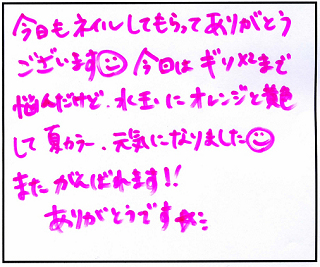 今日もネイルしてもらってありがとう
ございます☺ 今日は ギリギリまで
悩んだけど、水玉にオレンジと黄色
して夏カラー、元気になりました☺
またがんばれます!!
ありがとうです